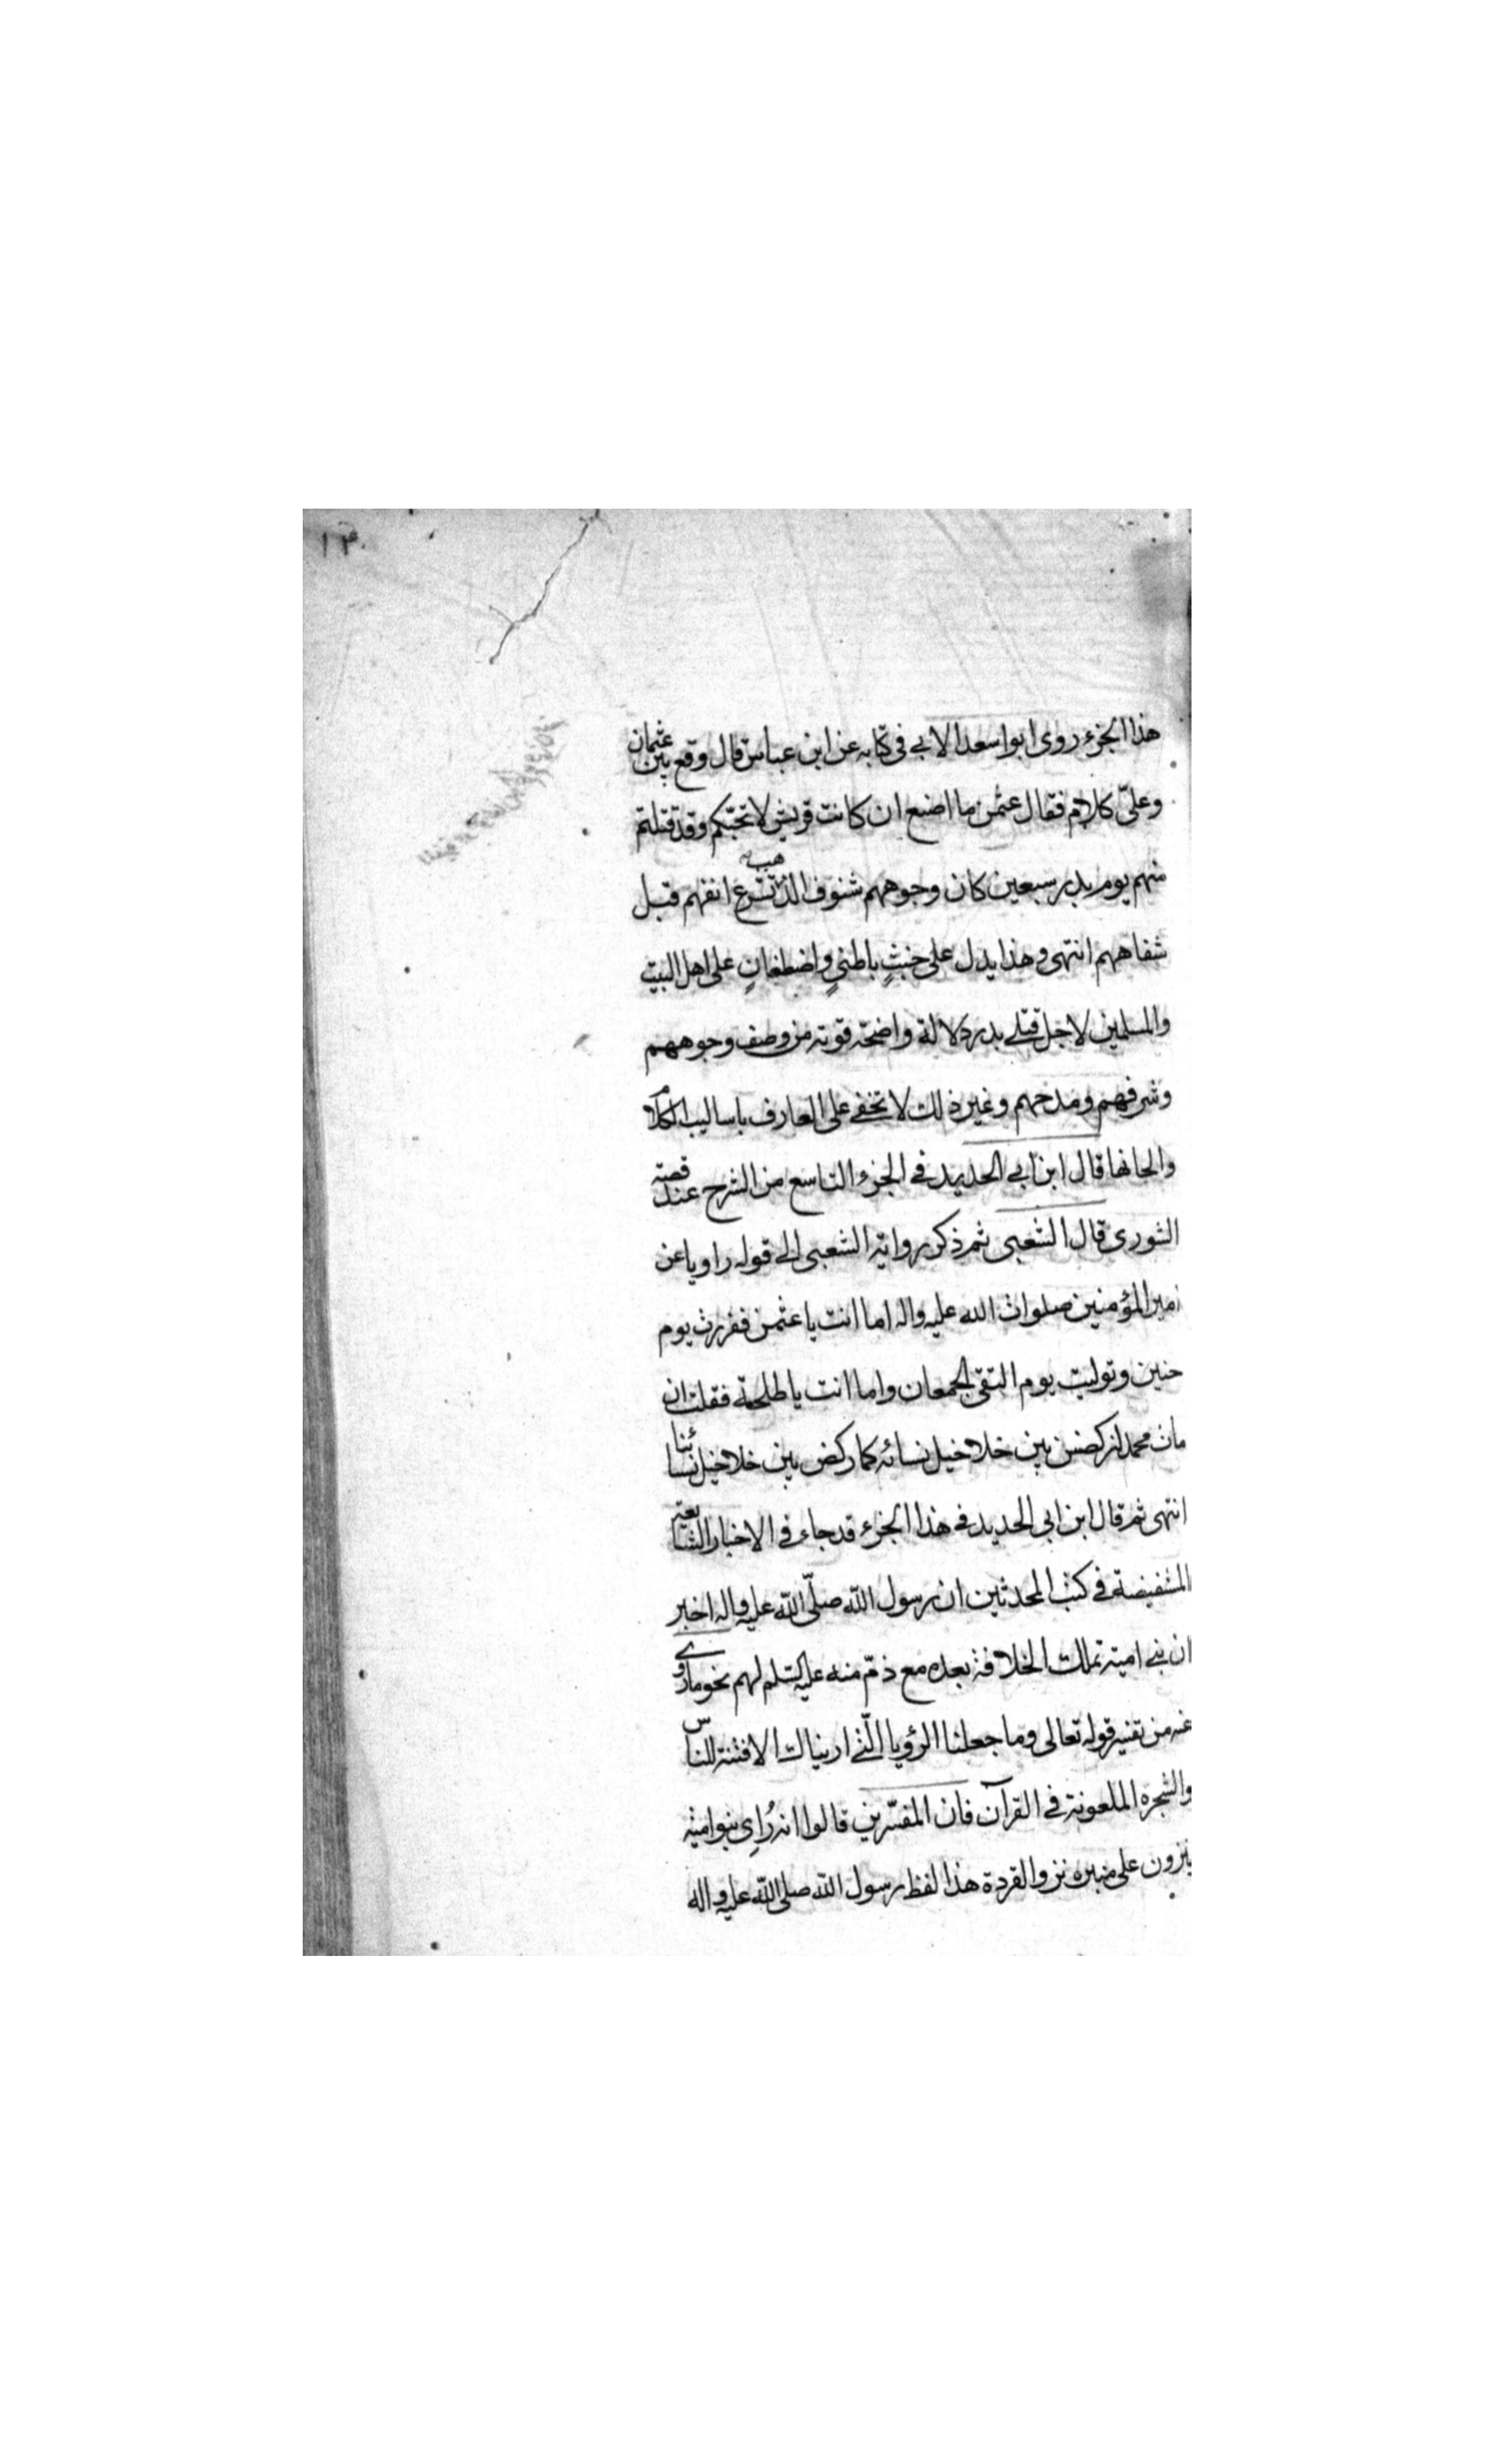 ١٣٠
هذا الجزء روى ابوا سعد الابي في كتابه عن ابن عباس قال وقع بين عثمان
وعليّ كلام فقال عثمن ما اصنع ان كانت قريش لا تحبّكم وقد قتلتم
منهم يوم بدر سبعين كان وجوههم شنوف الذهب تشرع انفهم قبل
شفاههم انتهى وهذا يدل على خبثٍ باطنيٍ واضطغانٍ على اهل البيت
والمسلمين لاجل قتلى بدر دلالة واضحة قوية من وصف وجوههم
وشرفهم ومدحهم وغير ذلك لا تخفى على العارف باساليب الكلام
والحانها قال ابن ابي الحديد في الجزء التاسع من الشرح عند قصة
الشورى قال الشعبي ثم ذكر رواية الشعبي الى قوله راويا عن
امير المؤمنين صلوات الله عليه واله اما انت يا عثمن ففررت يوم
حنين وتوليت يوم التقى الجمعان واما انت يا طلحة فقلت ان
مات محمد لنركضن بين خلاخيل نسائه كما ركض بين خلاخيل نسائنا
انتهى ثم قال ابن ابي الحديد في هذا الجزء قد جاء في الاخبار الشايعة
المستفيضة في كتب المحدثين ان رسول الله صلّى الله عليه واله اخبر
ان بني امية تملك الخلافة بعده مع ذمّ منه عليه السلم لهم نحو ما روي
عنه من تفسير قوله تعالى وما جعلنا الرؤيا الّتي اريناك الا فتنة للناس
والشجرة الملعونة في القرآن فان المفسّرين قالوا انه رُاِي بنو امية
ينزون على منبره نزو القردة هذا لفظ رسول الله صلى الله عليه واله